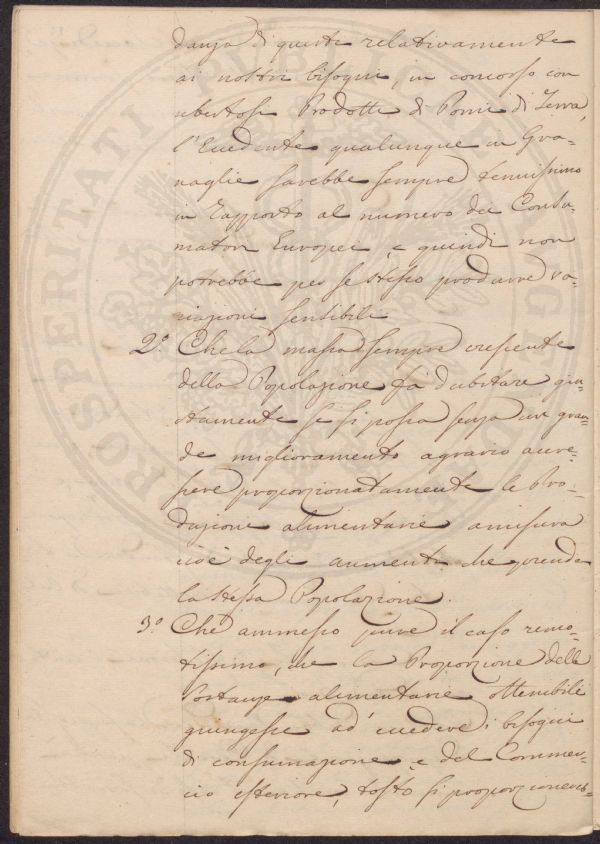 danza di queste relativamente
ai nostri bisogni, in concorso con
ubertosi Prodotti di Pomi di Terra,
l'Eccedente qualunque in Gra-
naglie sarebbe sempre tenuissimo
in rapporto al numero dei Consu-
matori Europei, e quindi non
potrebbe per se stesso produrre va-
riazioni sensibili
2.º Che la massa sempre crescente
della Popolazione fà dubitare giu-
stamente se si possa senza un gran-
de miglioramento agrario accre-
scere proporzionatamente le Pro-
duzione alimentarie a misura
cioè degli aumenti che prende
la stessa Popolazione.
3.º Che ammesso pure il caso remo-
tissimo, che la Proporzione delle
Sostanze alimentarie ottenibili
giungesse ad eccedere i bisogni
di consumazione e del Commer-
cio esteriore, tosto si proporzionereb-
PROSPERITATI PUBLICAE AUGENDAE